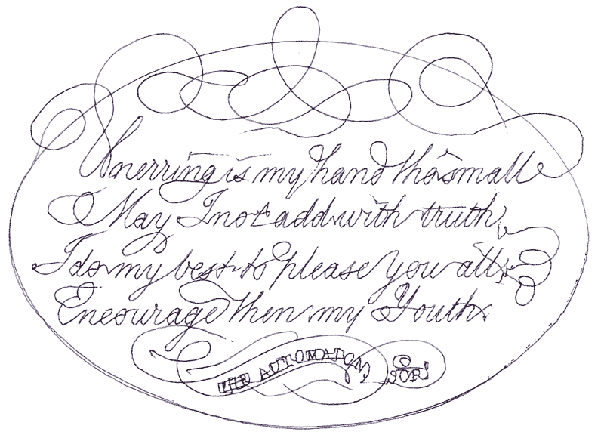 Unerring is my hand tho' small
May I not add with truth
I do my best to please you all;
Encourage then my Youth.
THE AUTOMATON